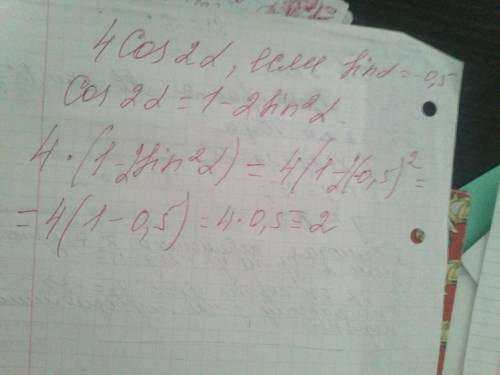 4 Cos 2α, если sin α = -0,5
Cos 2α = 1 - 2 sin²α
4 · (1 - 2 sin²α) = 4(1 - 2(-0,5)² =
= 4(1 - 0,5) = 4 · 0,5 = 2